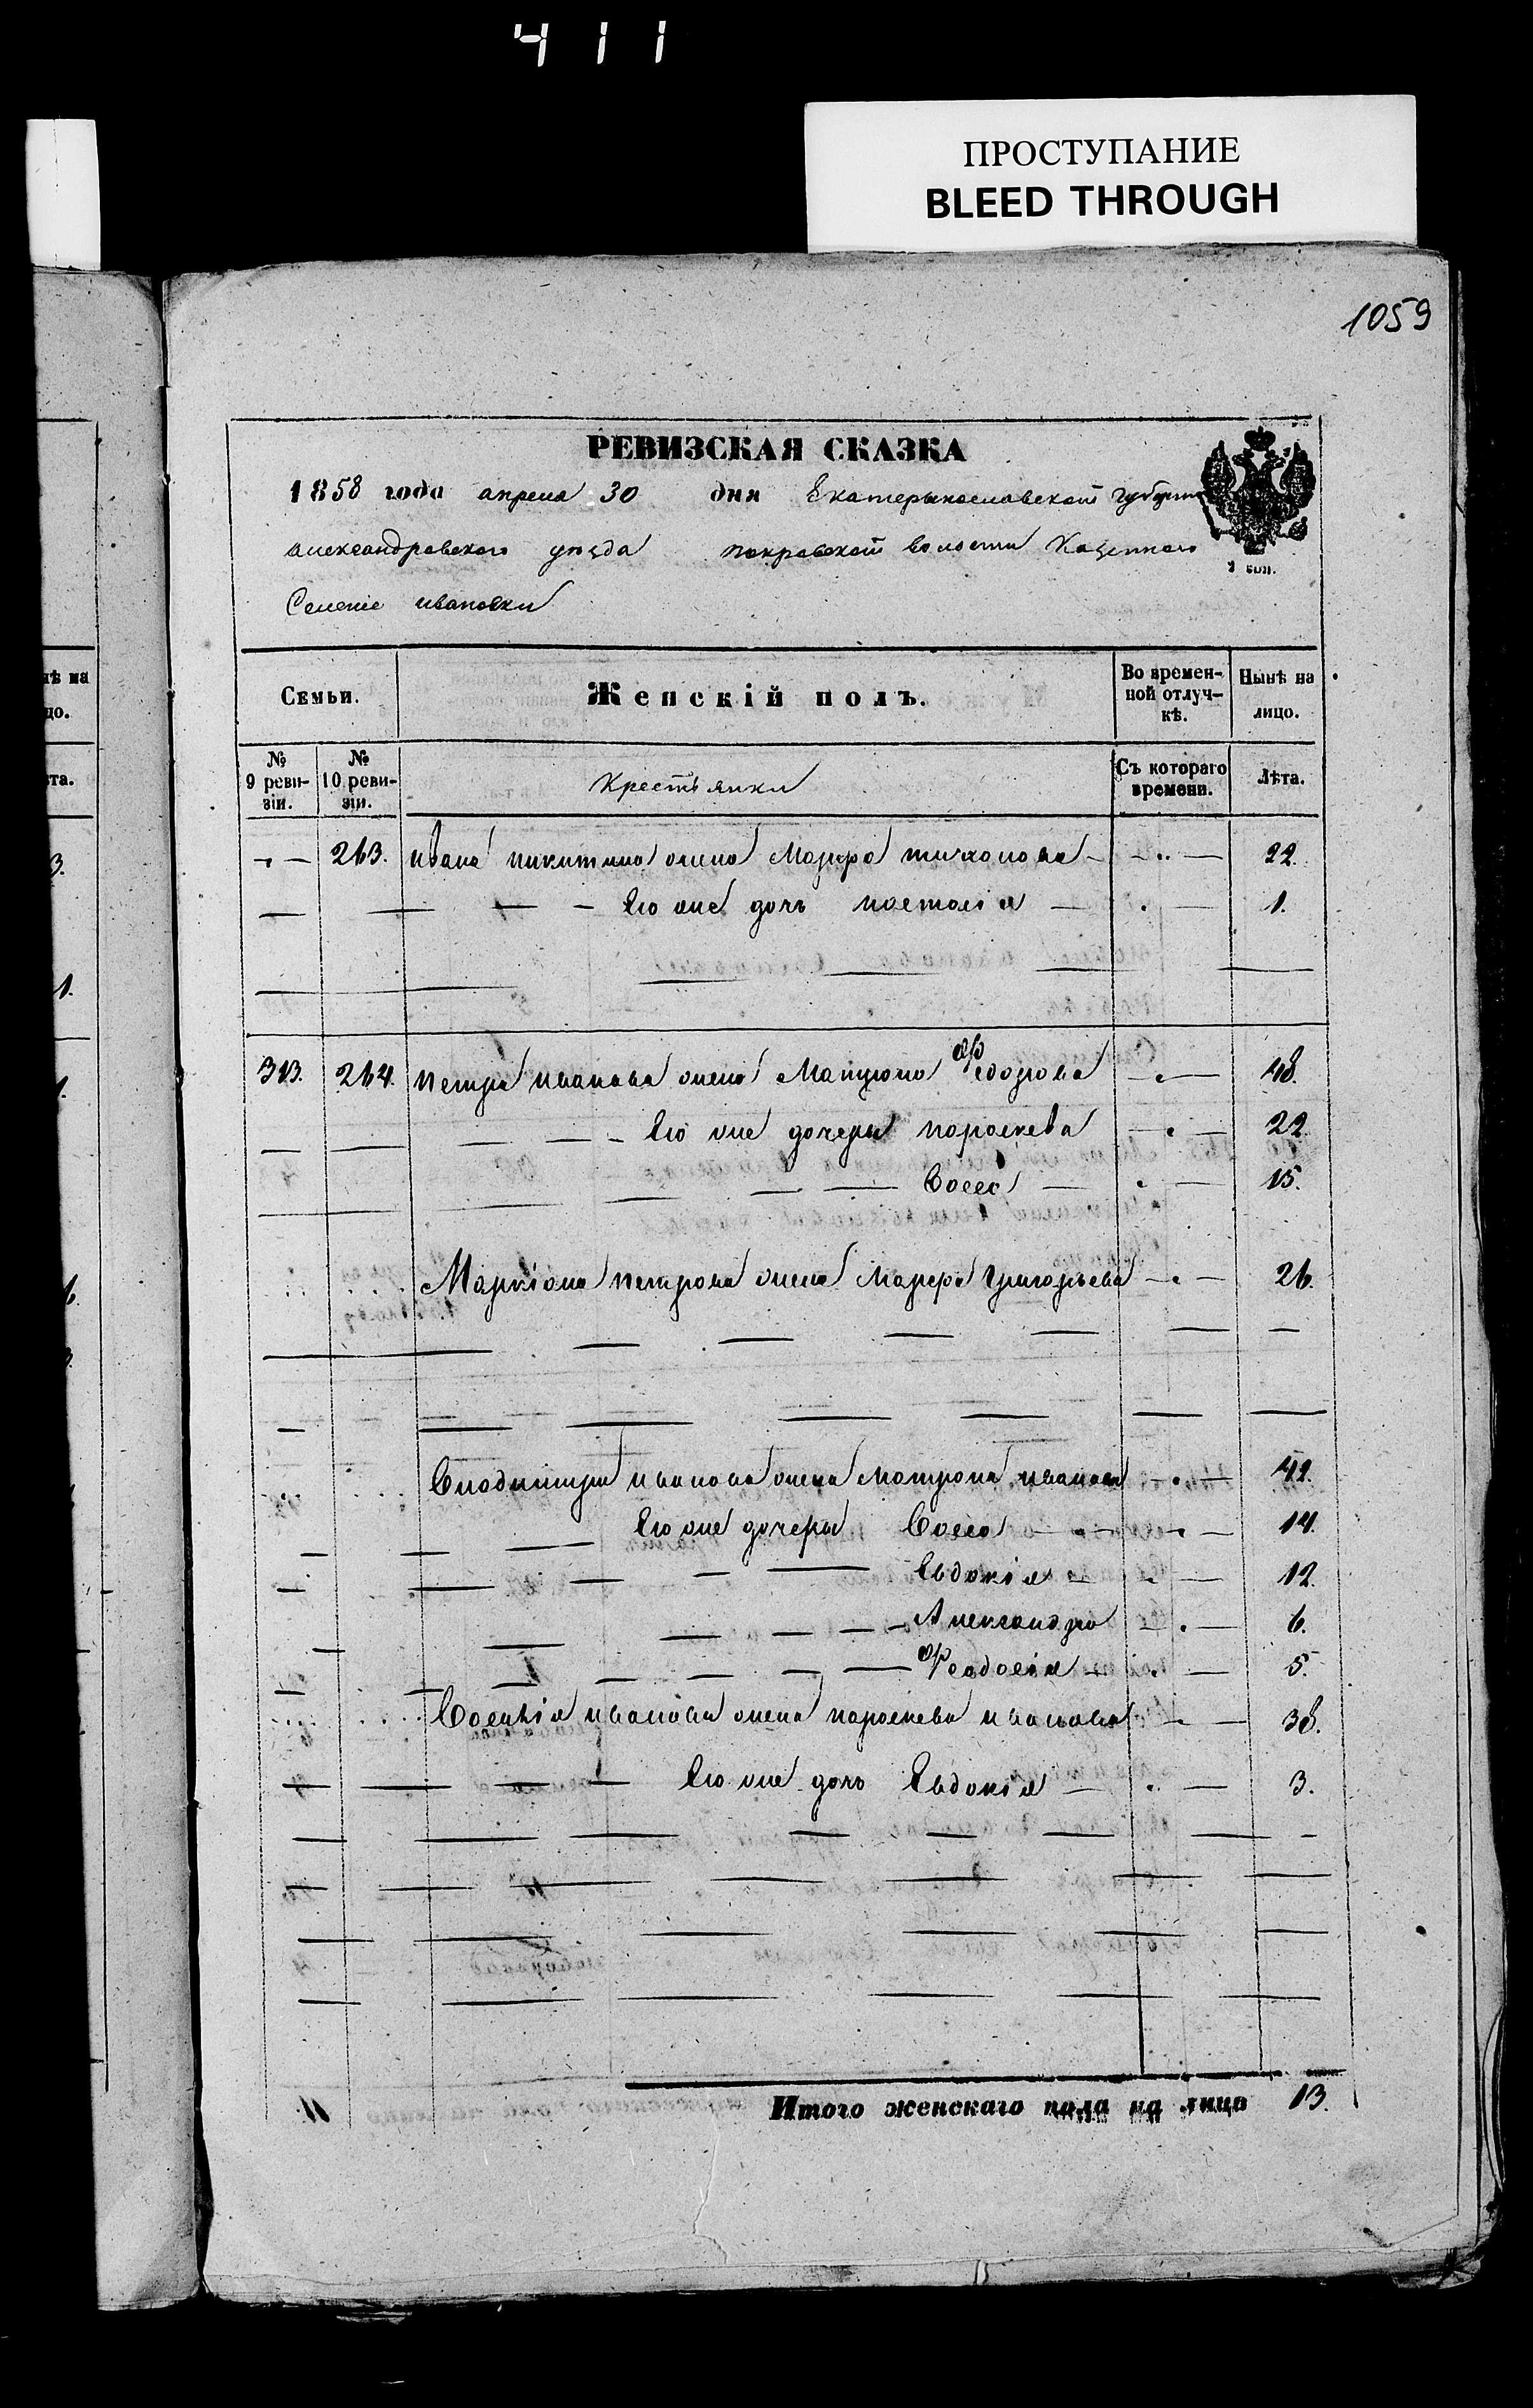 411
ПРОСТУПАНИЕ
BLEED THROUGH
1059
РЕВИЗСКАЯ СКАЗКА
1858 года апреля 30 дня Екатеринославской Губерни
александровского уезда покровской волости Казенного
Селение ивановки
1 коп.
Семьи. Женскій полъ. Во временной отлучкѣ. Нынѣ на лицо.
№ 9 ревизіи. № 10 ревизіи. Крестьянки Съ котораго времени. Лѣта.
263. ивана никитина жена Марфа тихонова 22.
Его жие дочь настасія 1.
313. 264. петра иванова жена Матрона Федорова 48.
Его жие дочери параскева 22
15.
Маркіана петрова жена Марфа Григорьева 26.
иванова жена Матрона иванова 42.
Его жие дочери 14.
Евдокія 12.
Александра 6.
Феодосія 5.
иванова жена параскева иванова 38.
Его жие дочь Евдокія 3.
Итого женскаго пола на лицо 13.